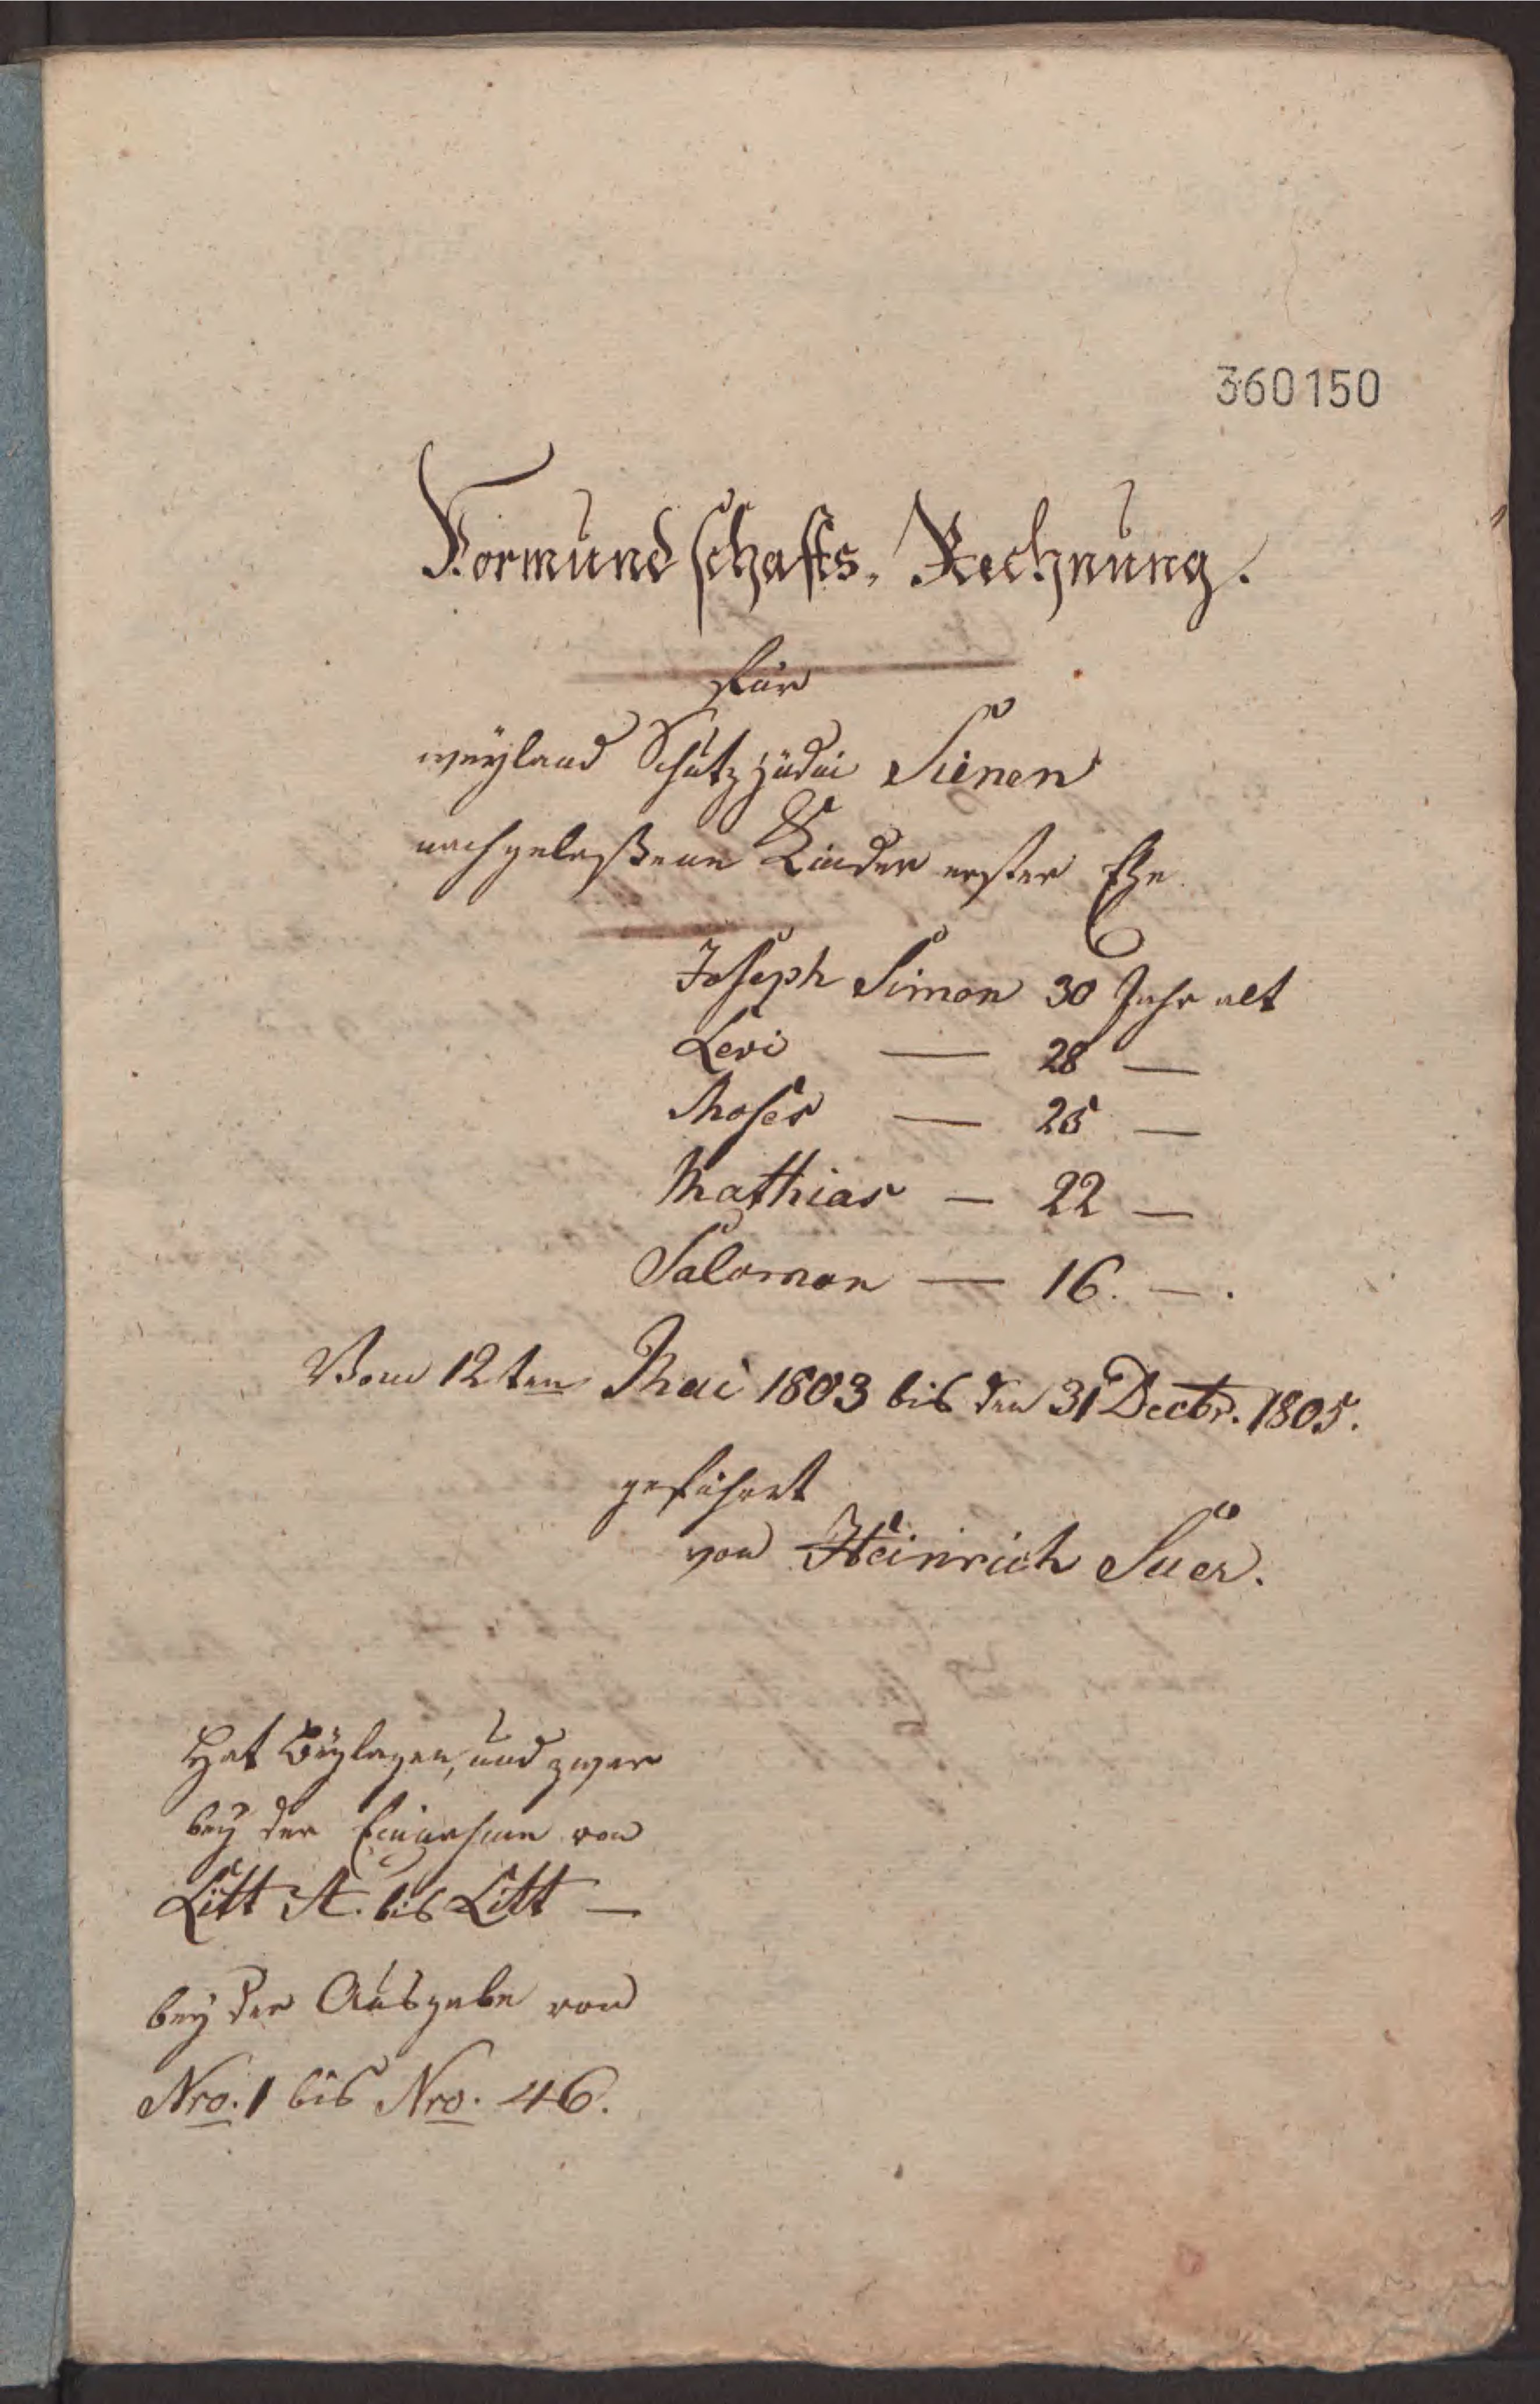 360150
Vormundschafts-Rechnung.
für
weyland Schutzjüdin Sienen
nachgelaßene Kinder erster Ehe
Joseph Simon 30 Jahr alt
Levi — 28 —
Moses — 25 —
Mathias — 22 —
Salomon — 16. —.
Vom 12ten Mai 1803 bis den 31 Decbr. 1805.
geführt
von Heinrich Suer.
Hat Beylagen, und zwar
bey der Einnahme von
Litt A. bis Litt —
bey der Ausgabe von
Nro. 1 bis Nro. 46.